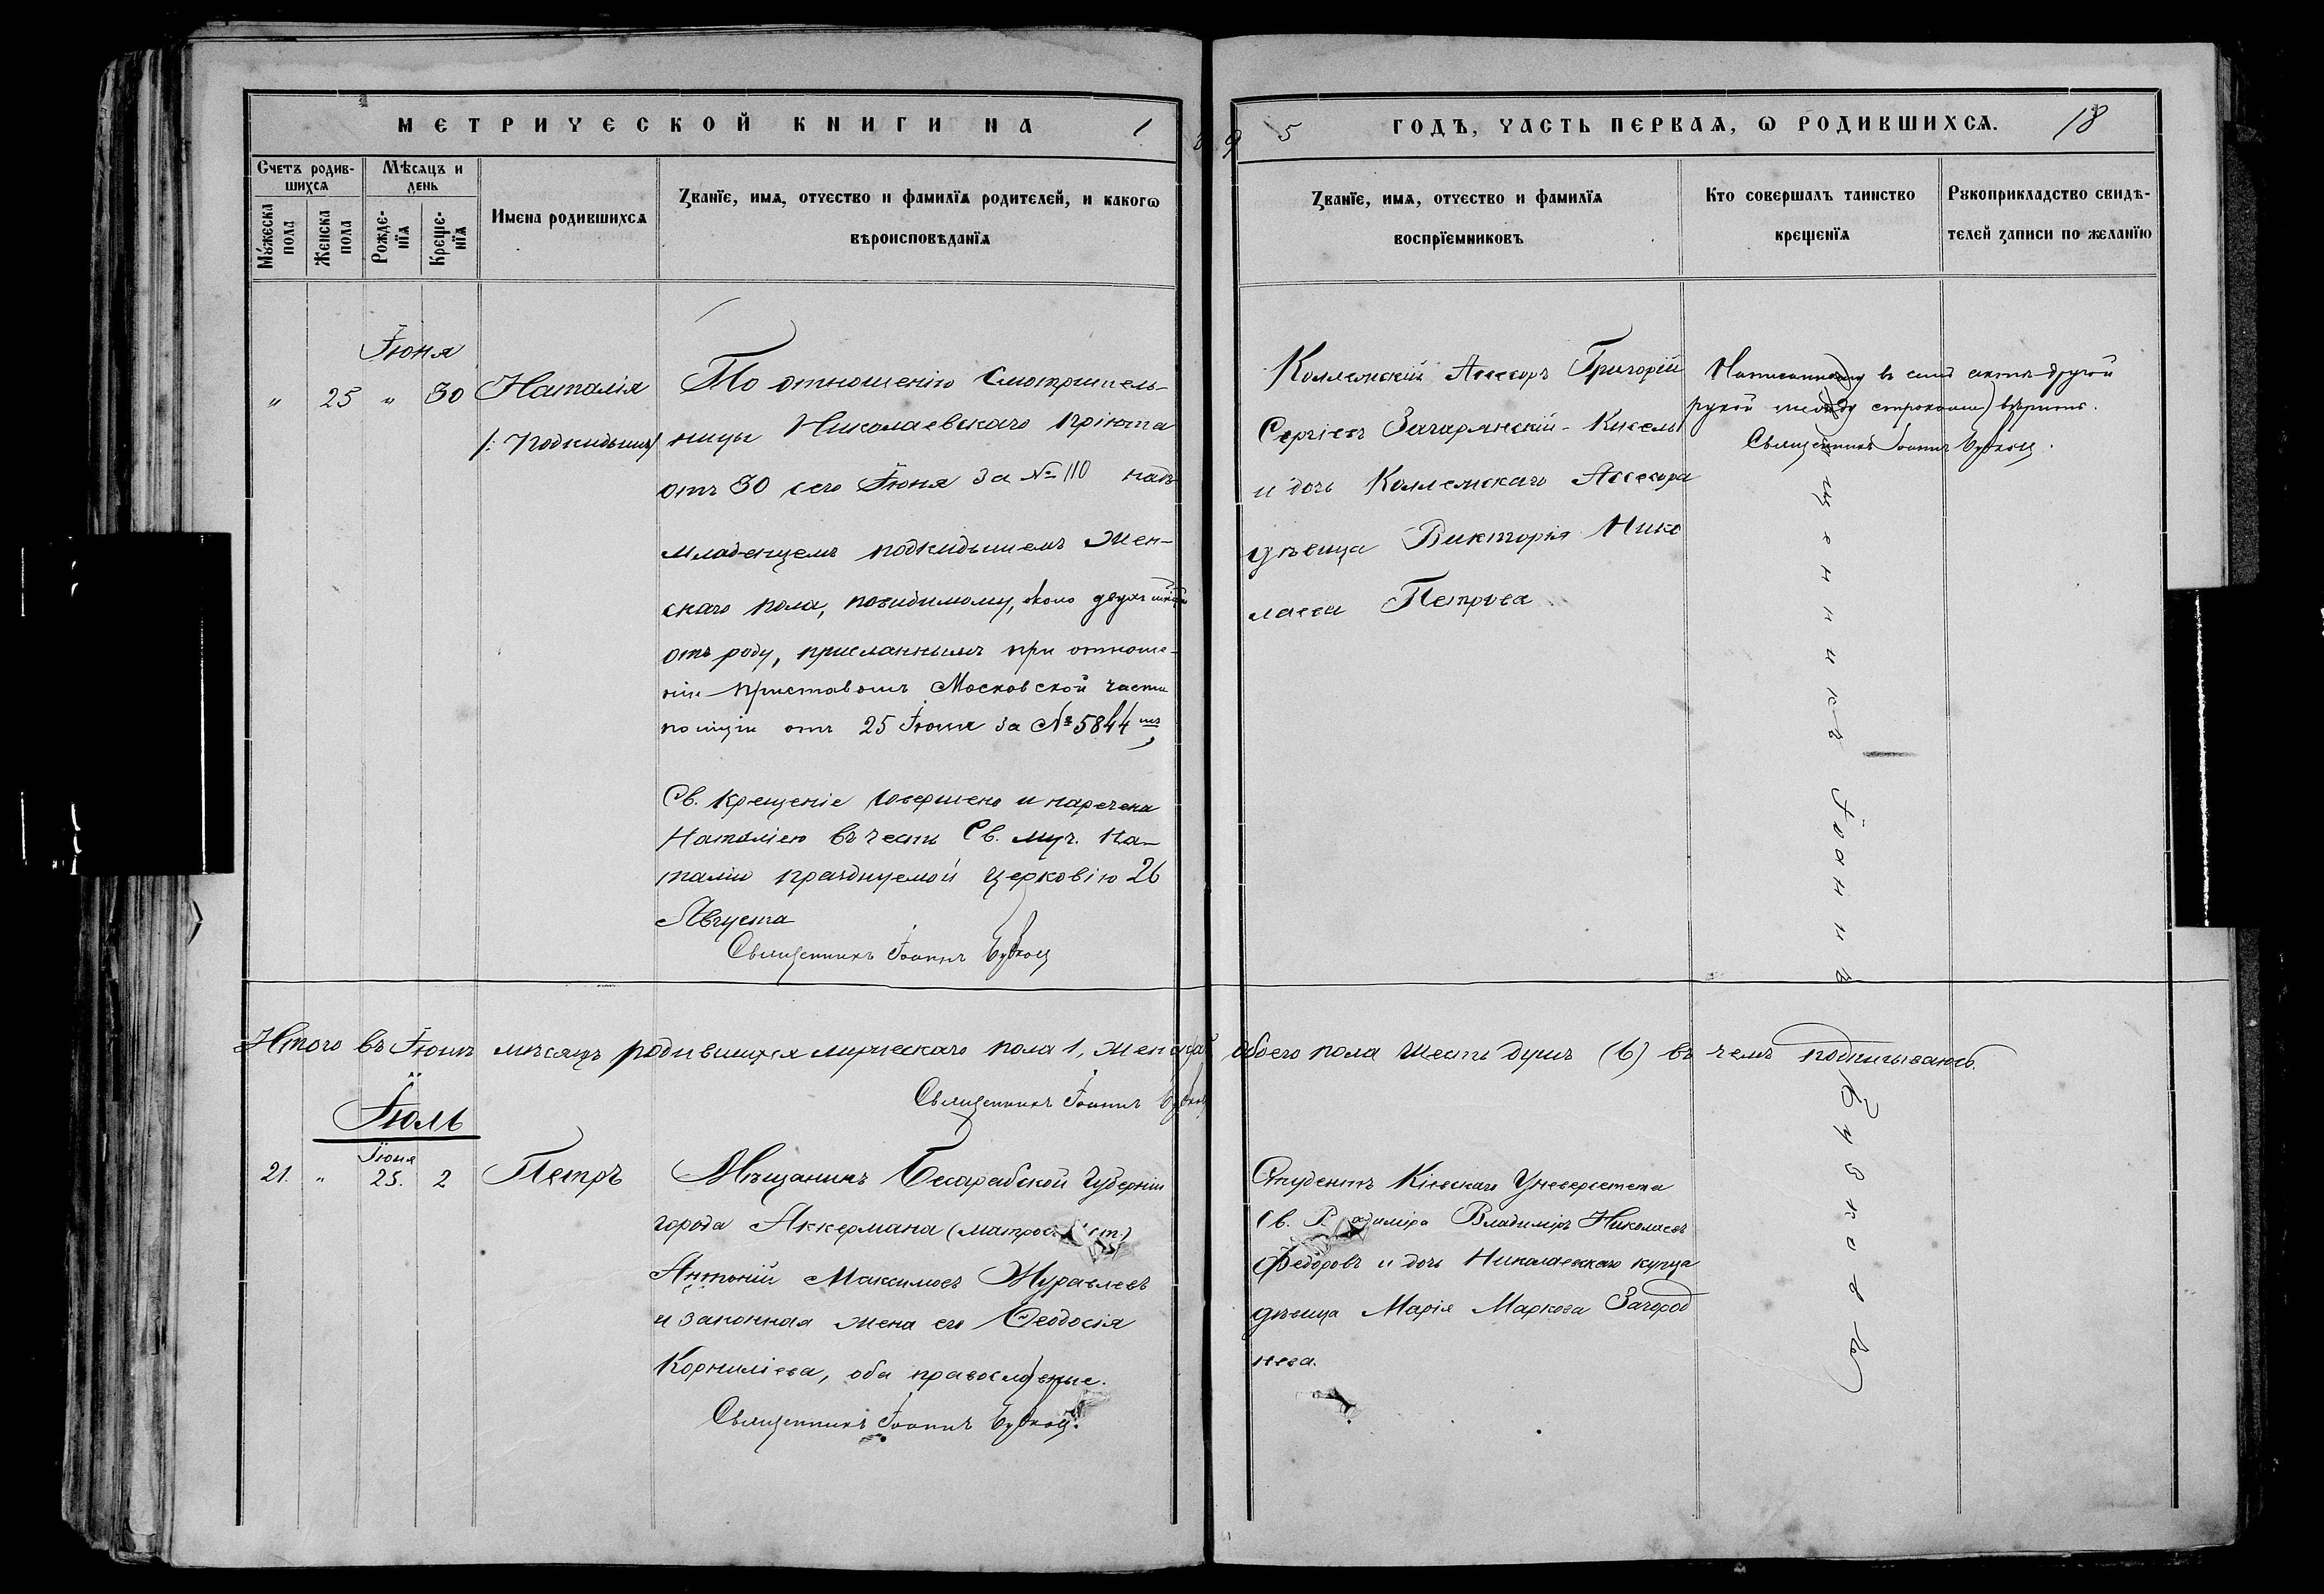 МЕТРИЧЕСКОЙ КНИГИ НА 1
895 ГОДЪ, ЧАСТЬ ПЕРВАЯ, Ѡ РОДИВШИХСЯ. 18
Счетъ родив-
шихся
Мѣсяцъ и
день
Мужеска
пола
Женска
пола
Рожде-
нїя
Креще-
нїя
Имена родившихся
Званїе, имя, отчество и фамилїя родителей, и какогѡ
вѣроисповѣданїя
Званїе, имя, отчество и фамилїя
воспрїемниковъ
Кто совершалъ таинство
крещенїя
Рукоприкладство свидѣ-
телей записи по желанїю
Іюня
" 25 " 30 Наталія
/: Подкидышъ
По отношенію Смотритель-
ницы Николаевскаго Пріюта
отъ 30 сего Іюня за № 110 надъ
младенцемъ подкидышемъ жен-
скаго пола, повидимому, около двухъ
отъ роду, присланнымъ при отноше-
ніи Приставомъ Московской части
полиціи отъ 25 Іюня за № 5844
Св. Крещеніе совершено и наречена
Наталіею въ честь Св. муч. На-
таліи празднуемой Церковію 26
Августа
Священникъ Іоаннъ
Коллежскій Ассесоръ Григорій
Сергіевъ Кисель
и дочь Коллежскаго Ассесора
дѣвица Викторія Нико
лаева Петрова
въ семъ актѣ другой
рукой между строками) вѣрить.
Священникъ Іоаннъ
Священникъ Іоаннъ
Итого въ Іюнѣ мѣсяцѣ родившихся мужескаго пола 1, женскаго обоего пола шесть душъ (6) въ чемъ подписываюсь.
Священникъ Іоаннъ
Іюль
Іюня
21. " 25. 2 Петръ
Мѣщанинъ Бесарабской Губерніи
города Аккермана
Антоній Максимовъ Журавлевъ
и законная жена его Ѳеодосія
Корниліева, оба православные.
Священникъ Іоаннъ
Студентъ Кіевскаго Университета
Св. Владиміра Владиміръ Николаевъ
Федоровъ и дочь Николаевскаго купца
дѣвица Марія Маркова Загород
нева.